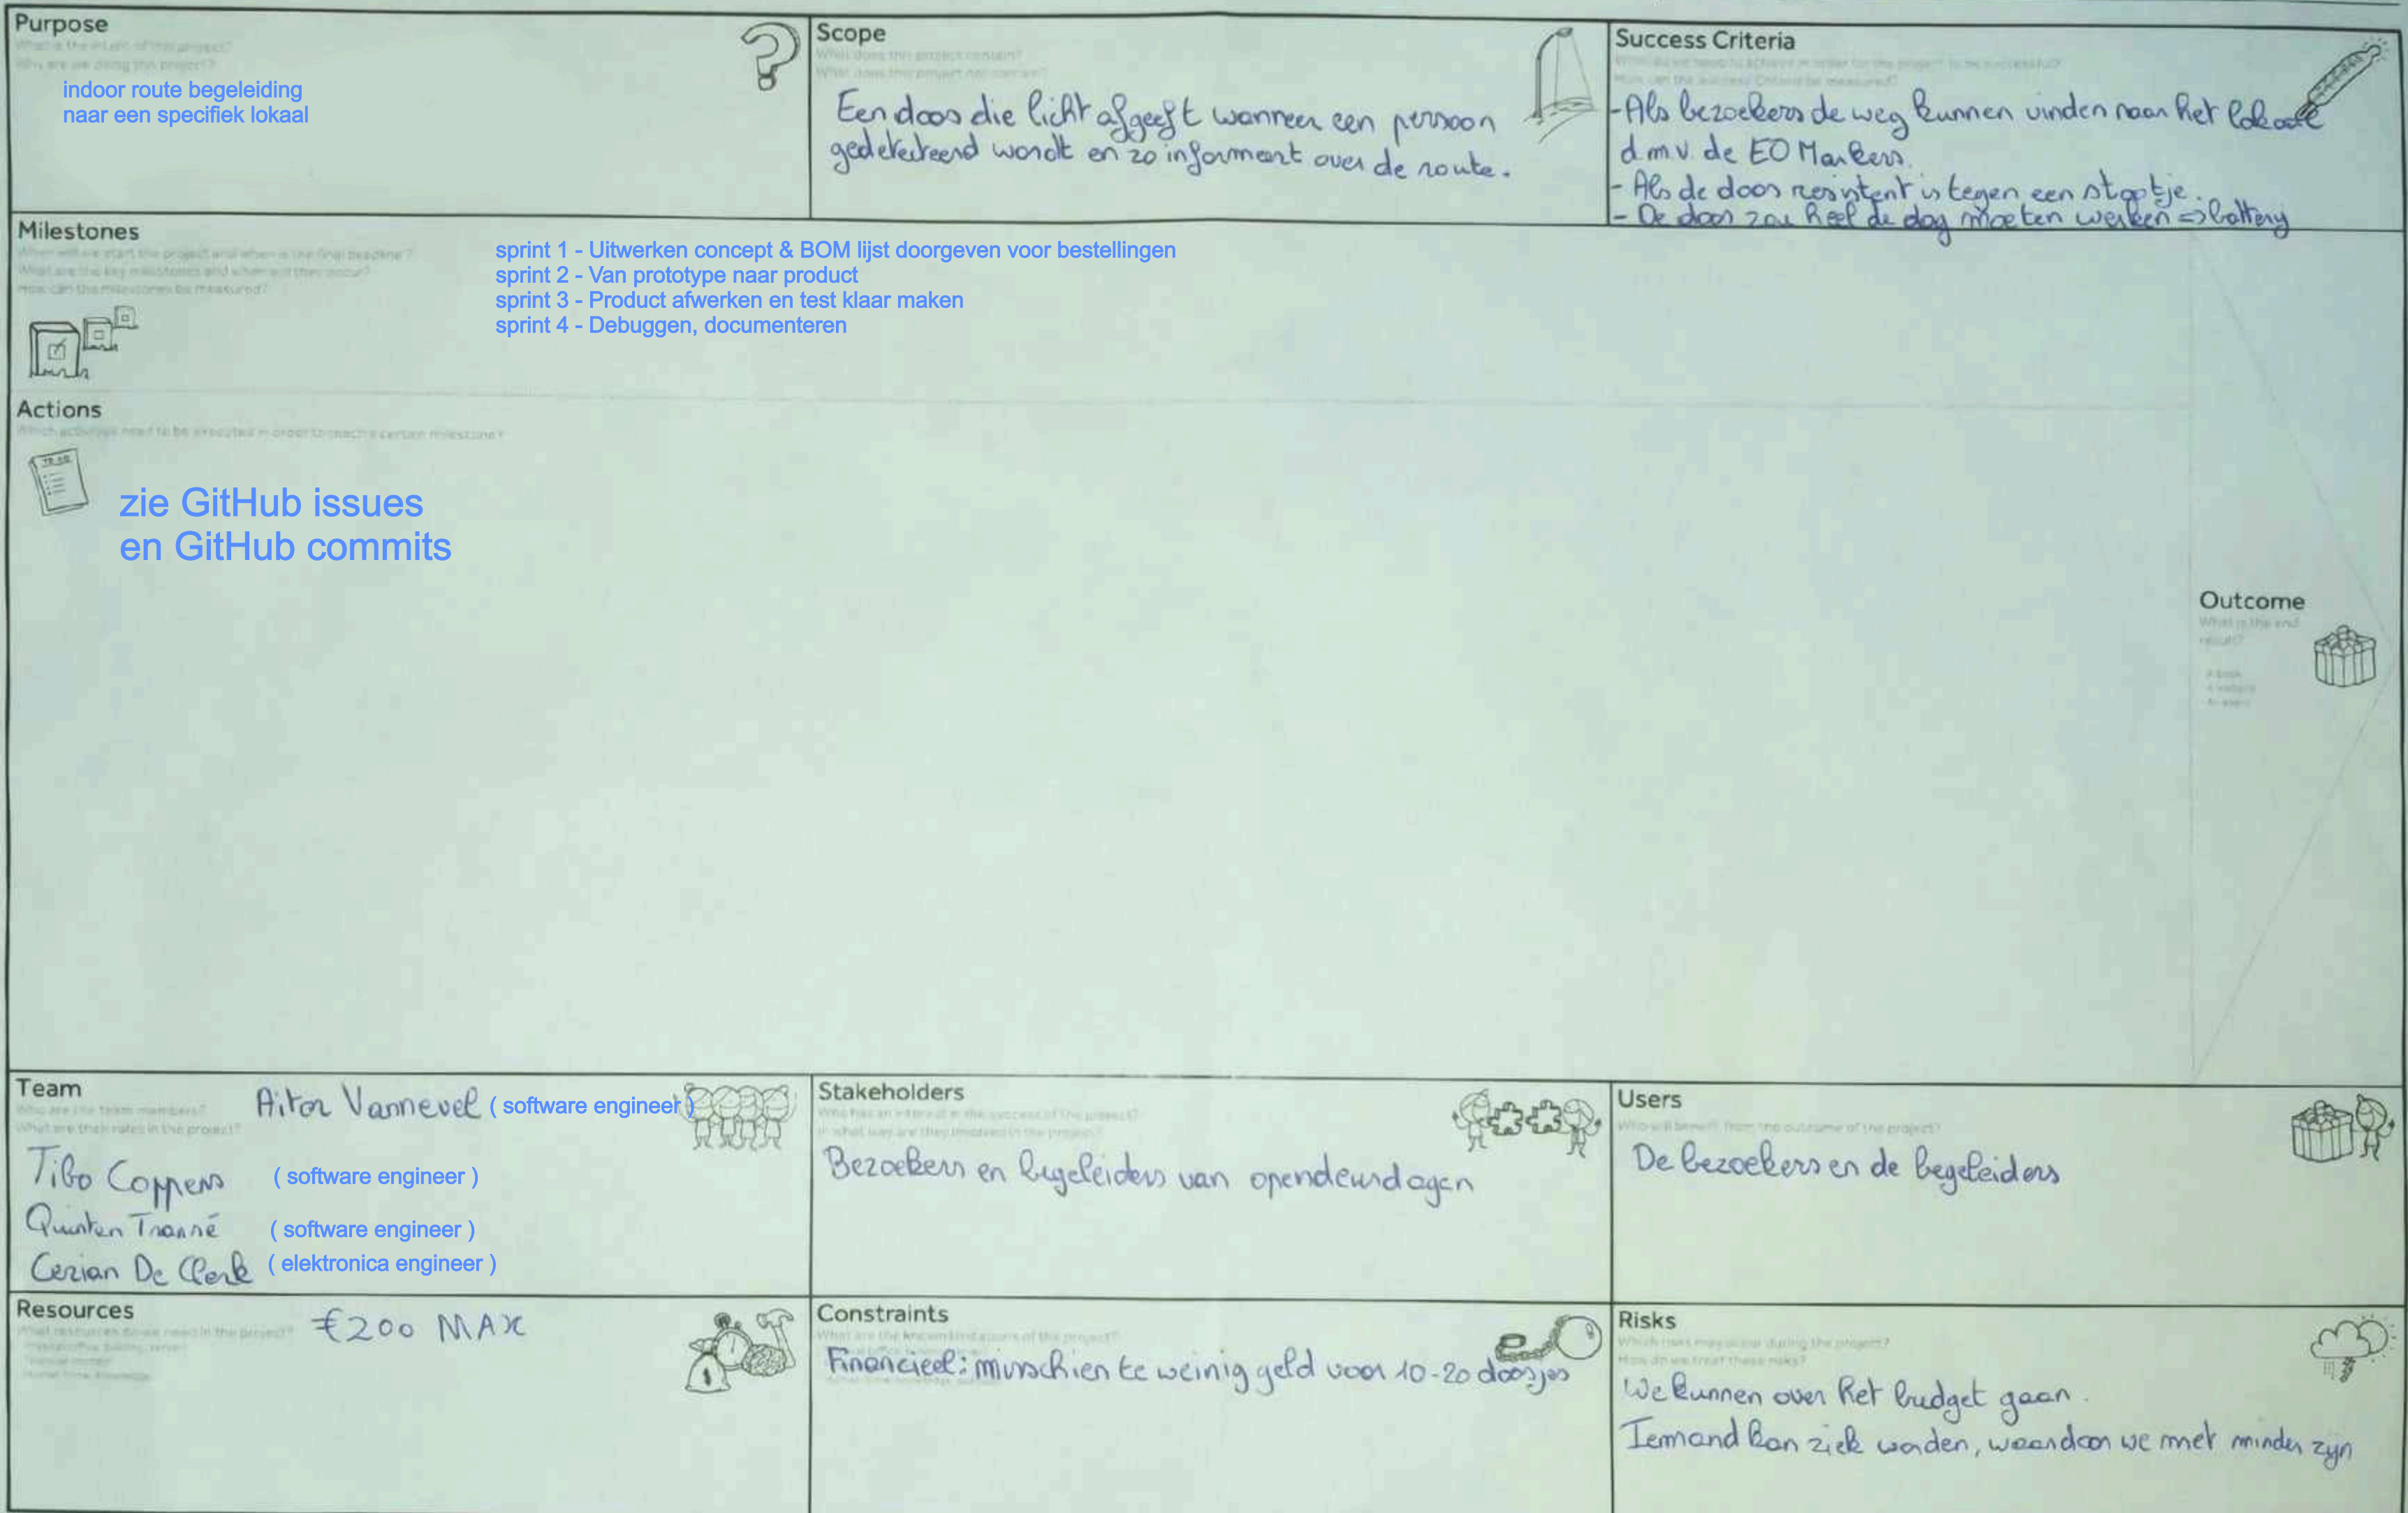 Purpose
What is the intent of this project?
Why are we doing this project?
indoor route begeleiding
naar een specifiek lokaal
Scope
What does this project contain?
What does this project not contain?
Een doos die licht afgeeft wanneer een persoon
gedetecteerd wordt en zo informeert over de route.
Success Criteria
What do we need to achieve in order for the project to be successful?
How can the Success Criteria be measured?
- Als bezoekers de weg kunnen vinden naar het lokaal
d.m.v. de EO Markers.
- Als de doos resistent is tegen een stootje.
- De doos zou heel de dag moeten werken => battery
Milestones
When will we start the project and when is the final deadline?
What are the key milestones and when will they occur?
How can the milestones be measured?
sprint 1 - Uitwerken concept & BOM lijst doorgeven voor bestellingen
sprint 2 - Van prototype naar product
sprint 3 - Product afwerken en test klaar maken
sprint 4 - Debuggen, documenteren
Actions
Which activities need to be executed in order to reach a certain milestone?
TO DO
zie GitHub issues
en GitHub commits
Outcome
What is the end
result?
Team
Who are the team members?
What are their roles in the project?
Aitor Vannevel ( software engineer )
Tibo Coppens ( software engineer )
Quinten Tranné ( software engineer )
Cezian De Clerk ( elektronica engineer )
Stakeholders
Who has an interest in the success of the project?
In what way are they involved in the project?
Bezoekers en begeleiders van opendeurdagen
Users
Who will benefit from the outcome of the project?
De bezoekers en de begeleiders
Resources
What resources do we need in the project?
€200 MAX
Constraints
What are the known limitations of the project?
Financieel: misschien te weinig geld voor 10-20 doosjes
Risks
Which risks may occur during the project?
How do we treat these risks?
We kunnen over het budget gaan.
Iemand kan ziek worden, waardoor we met minder zijn